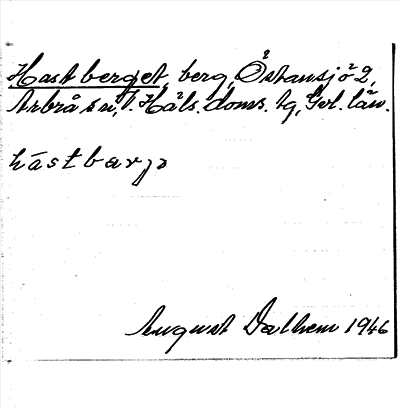 Hastberget, berg, Östansjö 2,
Arbrå sn, V. Häls. doms. tg, Gvl. län.
hástbarjə
August Dalhem 1946